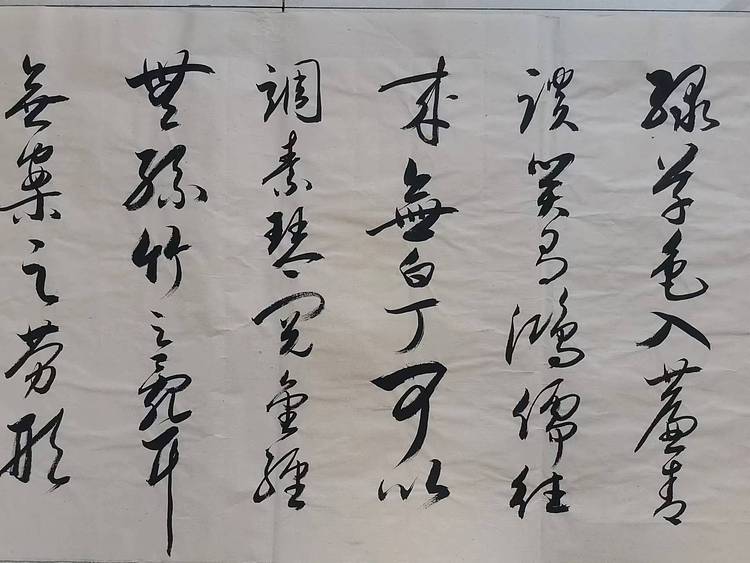 綠草色入簾青
談笑有鴻儒往
來無白丁可以
調素琴閱金經
無絲竹之亂耳
無案之勞形